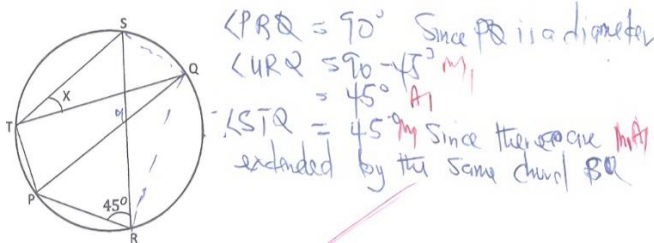 S
Q
X
T
P
45°
R
∠PRQ = 90° Since PQ is a diameter
∠URQ = 90 - 45° M1
= 45° A1
∠STQ = 45° M Since there are M1A1
extended by the same chord SQ